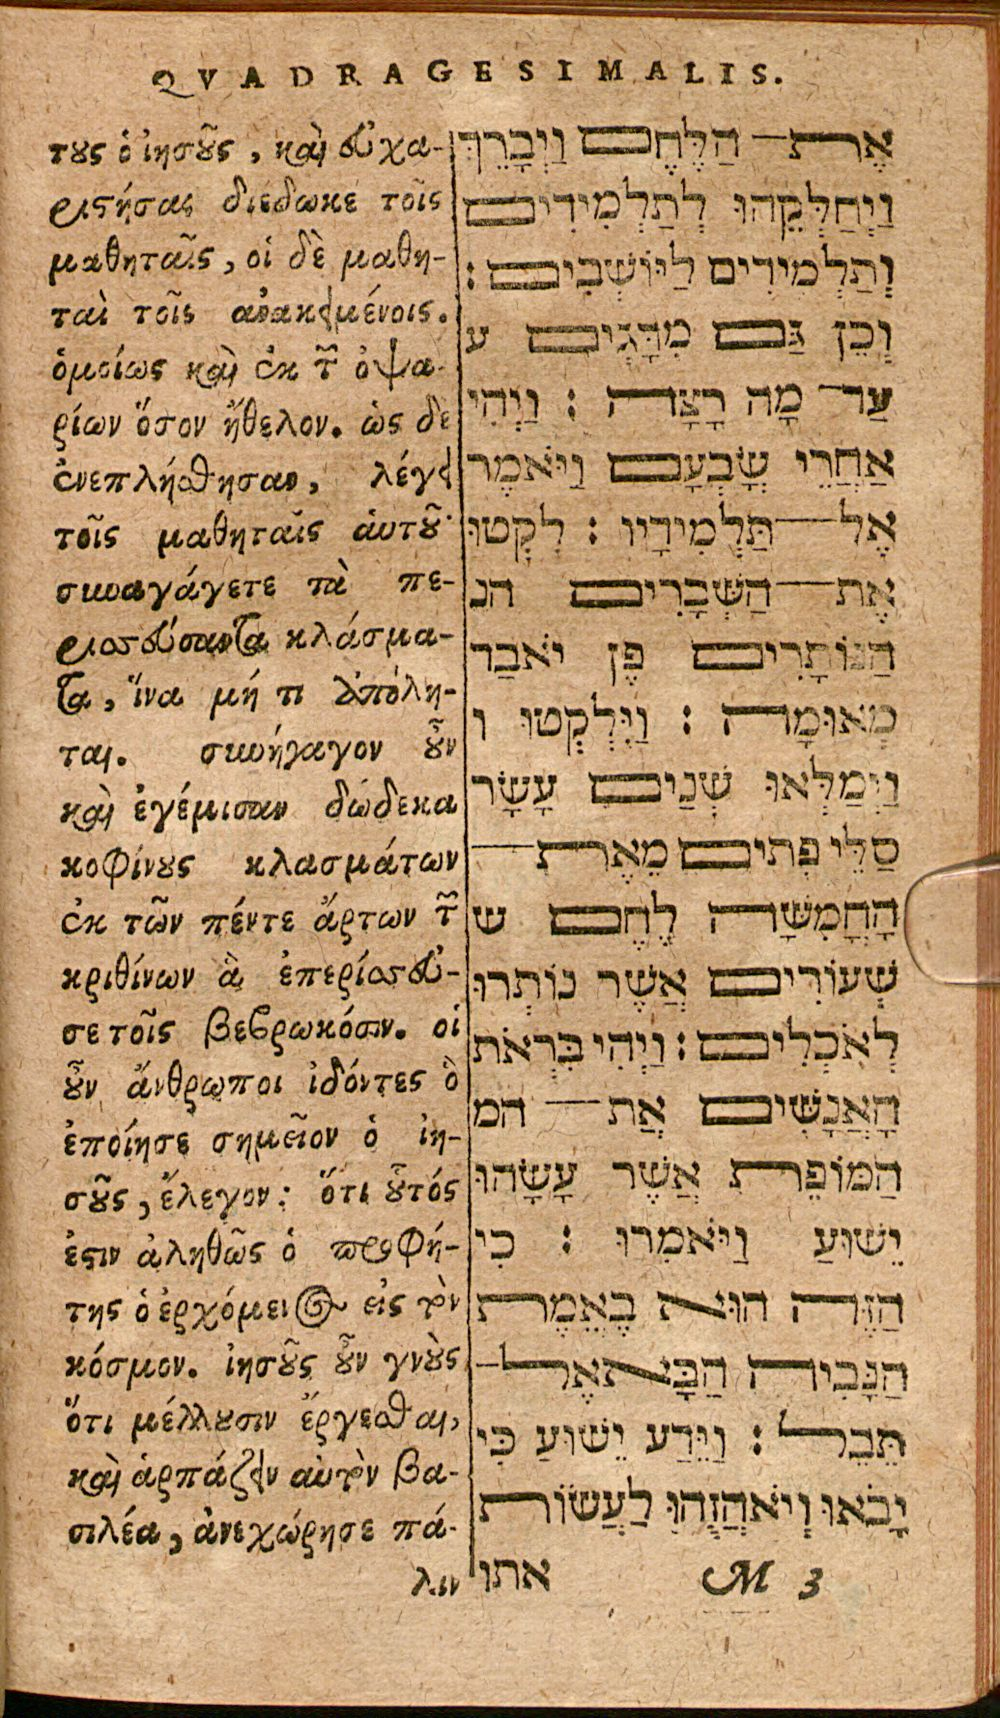 QVADRAGESIMALIS.
τους ὁ ἰησοῦς, καὶ εὐχα-
ριστήσας διέδωκε τοῖς
μαθηταῖς, οἱ δὲ μαθη-
ταὶ τοῖς ἀνακειμένοις.
ὁμοίως καὶ ἐκ τῶν ὀψα-
ρίων ὅσον ἤθελον. ὡς δὲ
ἐνεπλήσθησαν, λέγει
τοῖς μαθηταῖς ἁυτοῦ·
συναγάγετε τὰ πε-
ρισσεύσαντα κλάσμα-
τα, ἵνα μή τι ἀπόλη-
ται. συνήγαγον οὖν
καὶ ἐγέμισαν δώδεκα
κοφίνους κλασμάτων
ἐκ τῶν πέντε ἄρτων τῶν
κριθίνων ἃ ἐπερίσσευ-
σε τοῖς βεβρωκόσιν. οἱ
οὖν ἄνθρωποι ἰδόντες ὃ
ἐποίησε σημεῖον ὁ ἰη-
σοῦς, ἔλεγον: ὅτι οὗτός
ἐστιν ἀληθῶς ὁ προφή-
της ὁ ἐρχόμενος εἰς τὸν
κόσμον. ἰησοῦς οὖν γνοὺς
ὅτι μέλλουσιν ἔργεσθαι,
καὶ ἁρπάζειν αὐτὸν βα-
σιλέα, ἀνεχώρησε πά-
λιν
אֶת־ הַלֶּחֶם וַיְבָרֵךְ
וַיְחַלְּקֵהוּ לְתַלְמִידִים
וְתַלְמִידִים לַיּוֹשְׁבִים :
וְכֵן גַּם מִדָּגִים ע
עַד־ מָה רָצָה : וַיְהִי
אַחֲרֵי שָׂבְעָם וַיֹּאמֶר
אֶל־תַּלְמִידָיו : לִקְטוּ
אֶת־הַשְּׁבָרִים הנ
הַנּוֹתָרִים פֶּן יֹאבַד
מְאוּמָה : וַיִּלְקְטוּ ו
וַיְמַלְּאוּ שְׁנַיִם עָשָׂר
סַלֵּי פְתִים מֵאֶת־
הָחֲמִשָּׁה לֶחֶם ש
שְׂעוֹרִים אֲשֶׁר נוֹתְרוּ
לְאֹכְלִים : וַיְהִי בִּרְאֹת
הָאֲנָשִׁים אֶת־ המ
הַמּוֹפֵת אֲשֶׁר עָשָׂהוּ
יֵשׁוּעַ וַיֹּאמְרוּ : כִּי
הַזֶּה הוּא בֶאֱמֶת
הַנָּבִיא הַבָּא אֶל־
תֵּבֵל : וַיֵּדַע יֵשׁוּעַ כִּי
יָבֹאוּ וְיֹאהֲזֻהוּ לַעֲשׂוֹת
אתו
M 3